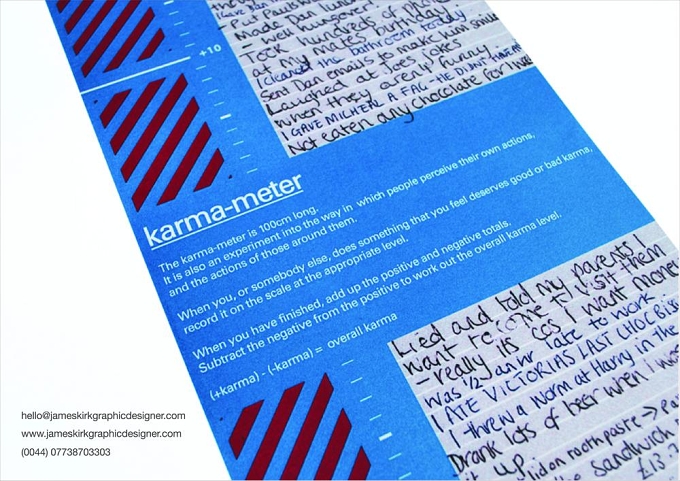 - Put Paul's
Made Dan lunch
- Well hungover!
Took hundreds of
at my mates birthday
I cleaned the bathroom
Sent Dan emails to make him smile
Laughed at Joes jokes
when they aren't funny
I GAVE MICHEAL A FAG HE DIDNT HAVE ANY
Not eaten any chocolate for
+10
karma-meter
The karma-meter is 100cm long.
It is also an experiment into the way in which people perceive their own actions,
and the actions of those around them.
When you, or somebody else, does something that you feel deserves good or bad karma,
record it on the scale at the appropriate level.
When you have finished, add up the positive and negative totals.
Subtract the negative from the positive to work out the overall karma level.
(+karma) - (-karma) = overall karma
Lied and told my parents I
want to come to visit them
- really its cos I want money
Was 1/2 an hr late to work
I ATE VICTORIAS LAST CHOC BISC
I threw a worm at Harry in the
Drank lots of beer when I
it up
lid on toothpaste →
the sandwich
£13
hello@jameskirkgraphicdesigner.com
www.jameskirkgraphicdesigner.com
(0044) 07738703303